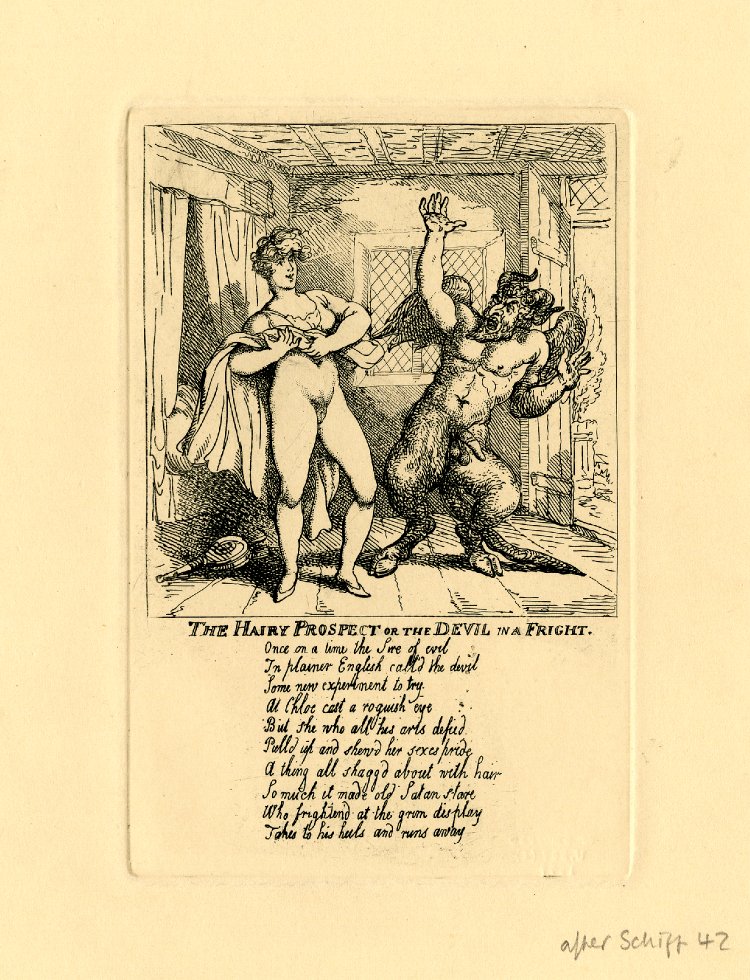 THE HAIRY PROSPECT OR THE DEVIL IN A FRIGHT.
Once on a time the Sire of evil
In plainer English call'd the devil
Some new experiment to try
At Chloe cast a roguish eye
But she who all his arts defied
Pull'd up and shew'd her sexes pride
A thing all shagg'd about with hair
So much it made old Satan stare
Who frightend at the grim display
Takes to his heels and runs away
after Schiff 42